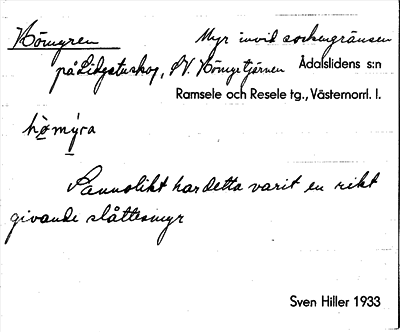 Hömyren Myr invid sockengränsen
på Lidgatuskog, SV. Hömyrtjärnen Ådalslidens s:n
Ramsele och Resele tg., Västernorrl. l.
hömýra
Sannolikt har detta varit en rikt
givande slåttesmyr
Sven Hiller 1933